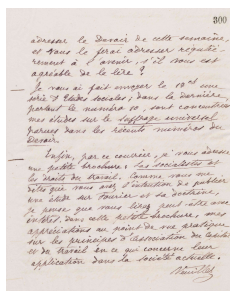 300
adresser le Devoir de cette semaine,
et vous le ferai adresser réguliè-
rement à l'avenir, s'il vous est
agréable de le lire ?
Je vous ai fait envoyer la 1ère
série d'Etudes sociales ; dans la dernière,
portant le numéro 10, sont concentrées
mes études sur le suffrage universel
parues dans les récents numéros du
Devoir.
Enfin, par ce courrier, je vous adresse
une petite brochure : Les socialistes et
les droits du travail. Comme vous me
dites que vous avez l'intention de publier
une étude sur Fourier et sa doctrine,
je pense que vous lirez peut-être avec
intérêt dans cette petite brochure, mes
appréciations au point de vue pratique
sur les principes d'association du capital
et du travail en ce qui concerne leur
application dans la société actuelle.
Veuillez